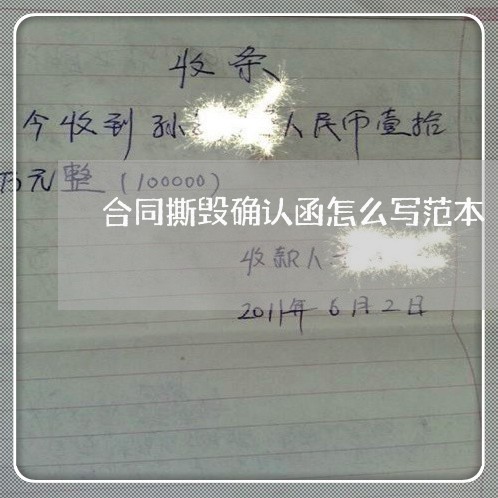 收条
今收到孙人民币壹拾
万元整(100000)
合同撕毁确认函怎么写范本
收款人
2011年6月2日